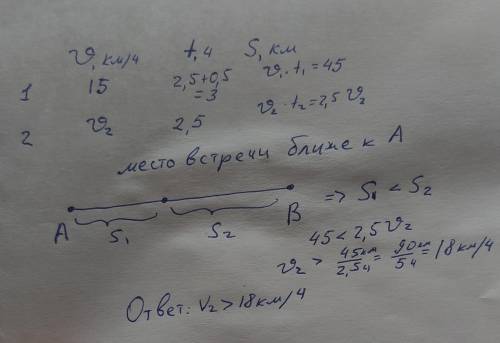 v, км/ч t, ч S, км
1 15 2,5+0,5 =3 v₁·t₁=45
2 v₂ 2,5 v₂·t₂=2,5 v₂
место встречи ближе к A
A S₁ S₂ B => S₁ < S₂
45 < 2,5 v₂
v₂ > 45км/2,5ч = 90км/5ч = 18 км/ч
Ответ: v₂ > 18 км/ч